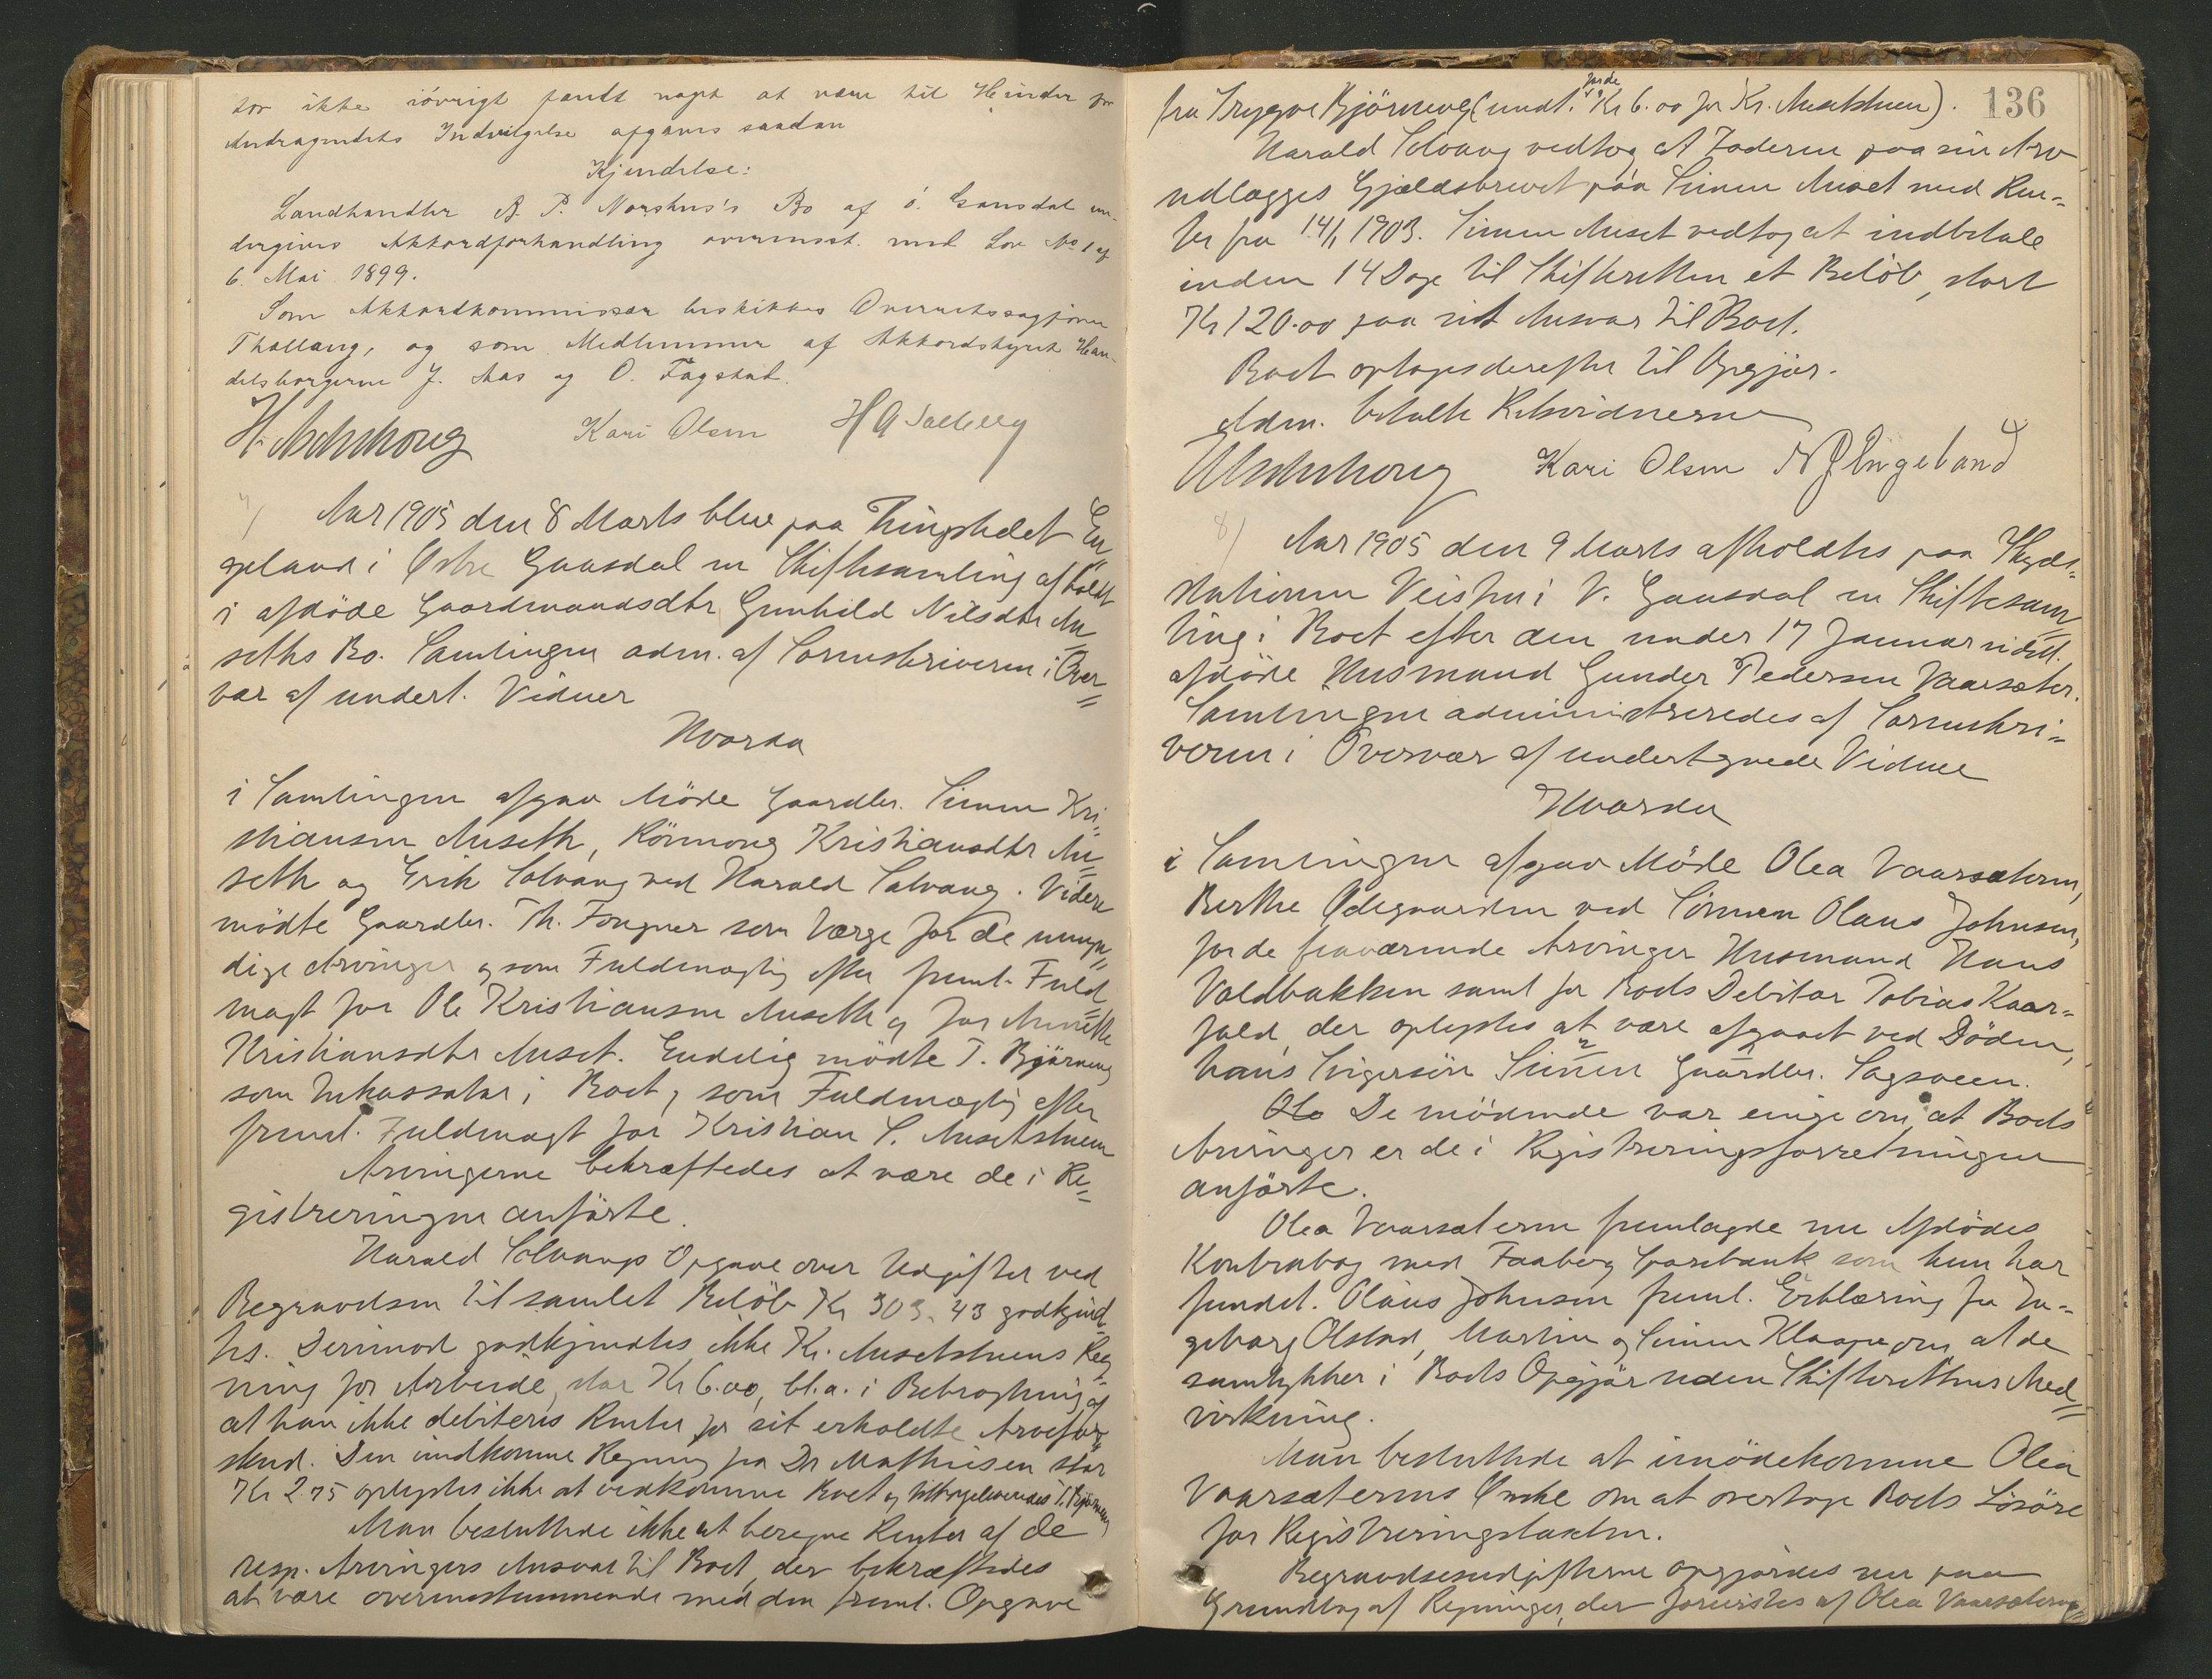 for ikke iövrigt fandt noget at være til Hinder for
Andragendets Indvilgelse afgaves saadan
Kjendelse:
Landhandler A. P. Norshus's Bo af ö. Gausdal un-
dergives Akkordforhandling overensst. med Lov No 1 af
6. Mai 1899.
Som Akkordkommissær beskikkes Overretssagförer
Thallaug, og som Medlemmer af Akkordstyret Han-
delsborgerne J. Aas og O. Fagstad.
Kari Olsen
7/ Aar 1905 den 8 Marts blev paa Thingstedet En
geland i Østre Gausdal en Skiftesamling afholdt
i afdöde Gaardmandsdtr Gunhild Nilsdtr Au
seths Bo. Samlingen adm. af Sorenskriveren i Over=
vær af undert. Vidner
Hvorda
i Samlingen afgav Möde Gaardbr. Simen Kri=
stiansen Auseth, Rönnoug Kristiansdtr Au=
seth og Erik Solvang ved Harald Solvang. Videre
mödte Gaardbr. Th. Fougner som Værge for de umyn=
dige Arvinger og som Fuldmægtig efter freml. Fuld=
magt for Ole Kristiansen Auseth og for Annette
Kristiansdtr Auset. Endelig mödte T. Björneng
som Inkassator i Boet, som Fuldmægtig efter
freml. Fuldmagt for Kristian S. Ausetstuen
Arvingerne bekræftedes at være de i Re=
gistreringen anförte.
Harald Solvangs Opgave over Udgifter ved
Begravelsen til samlet Belöb Kr 303.43 godkjend
tes. Derimod godkjendtes ikke Kr. Ausetstuens Reg=
ning for Arbeide, stor Kr 6.00, bl.a. i Betragtning af
at han ikke debiteres Renter for sit erholdte Arvefor=
skud. Den indkomne Regning fra Dr Mathiesen stor
Kr 2.75 oplystes ikke at vedkomme Boet og tilbageleveredes T. Björneng
Man besluttede ikke at beregne Renter af de
resp. Arvingers Ansvar til Boet, der bekræftedes
at være overensstemmende med den freml. Opgave
136
fra Trygve Björneng (undt. Kr 6.00 for Kr. Ausetstuen).
Harald Solvang vedtog at Faderen paa sin Arv
udlægges Gjældsbrevet paa Simen Auset med Ren=
ter fra 14/1 1903. Simen Auset vedtog at indbetale
inden 14 Dage til Skifteretten et Belöb, stort
Kr 120.00 paa sit Ansvar til Boet.
Boet optoges derefter til Opgjör.
Adm. betalte Retsvidnerne
Kari Olsen N P Engeland
8/ Aar 1905 den 9 Marts afholdtes paa Skyds=
stationen Veisten i V. Gausdal en Skiftesam
ling i Boet efter den under 17 Januar sidstl.
afdöde Husmand Gunder Pedersen Vaarsæter.
Samlingen administreredes af Sorenskri=
veren i Overvær af undertegnede Vidner
Hvorda
i Samlingen afgav Möde Olea Vaarsæteren,
Berthe Ødegaarden ved Sönnen Olaus Johnsen,
for de fraværende Arvinger Husmand Hans
Voldbakken samt for Boets Debitor Tobias Kaar=
fald, der oplystes at være afgaaet ved Döden,
hans Svigersön Simen Gaardbr. Sagsveen.
Ola De mödende var enige om at Boets
Arvinger er de i Registreringsforretningen
anförte.
Olea Vaarsæteren fremlagde nu Afdödes
Kontrabog med Faaberg Sparebank som hun har
fundet. Olaus Johnsen freml. Erklæring fra In=
geborg Olstad, Martin og Simen Klaape om, at de
samtykker i Boets Opgjör uden Skifterettens Med=
virkning.
Man besluttede at imödekomme Olea
Vaarsæterens Ønske om at overtage Boets Lösöre
for Registreringstaxten.
Begravelsesudgifterne opgjordes nu paa
Grundlag af Regninger, der forevistes af Olea Vaarsæteren